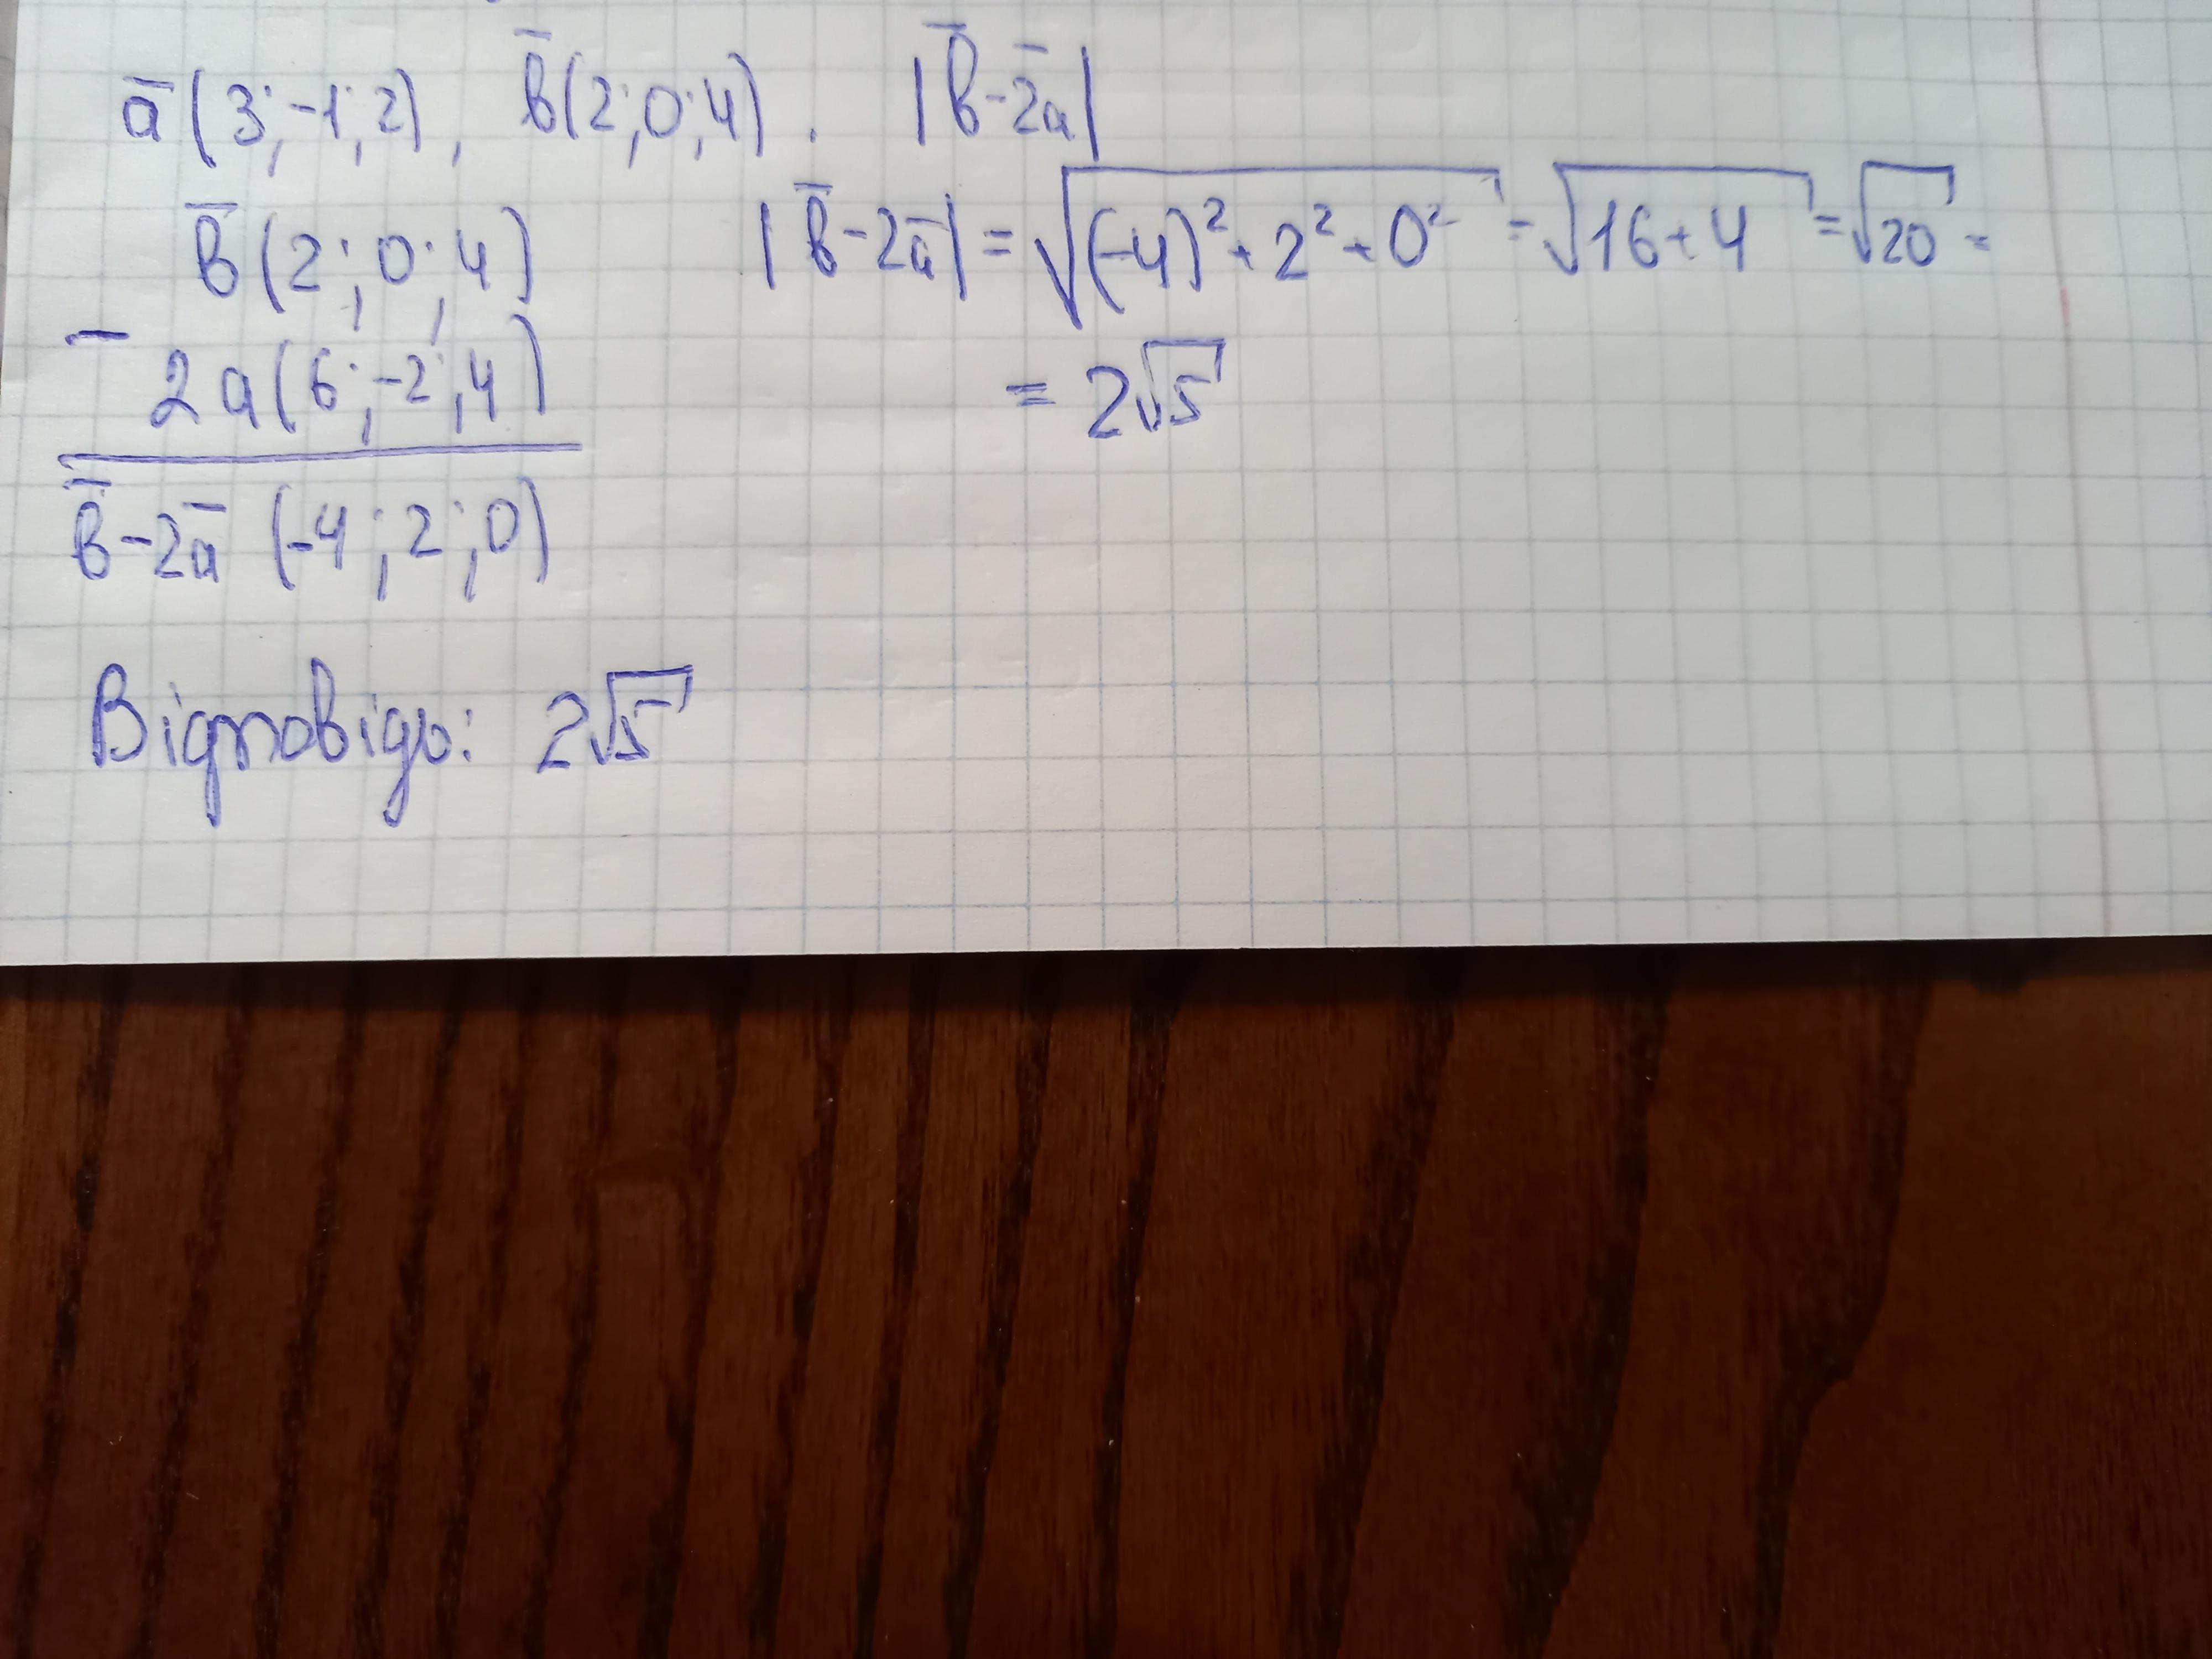 a̅ (3; -1; 2), b̅ (2; 0; 4). |b̅ - 2a̅|
b̅ (2; 0; 4)
- 2a (6; -2; 4)
b̅ - 2a̅ (-4; 2; 0)
|b̅ - 2a̅| = √((-4)² + 2² + 0²) = √(16 + 4) = √20 =
= 2√5
Відповідь: 2√5